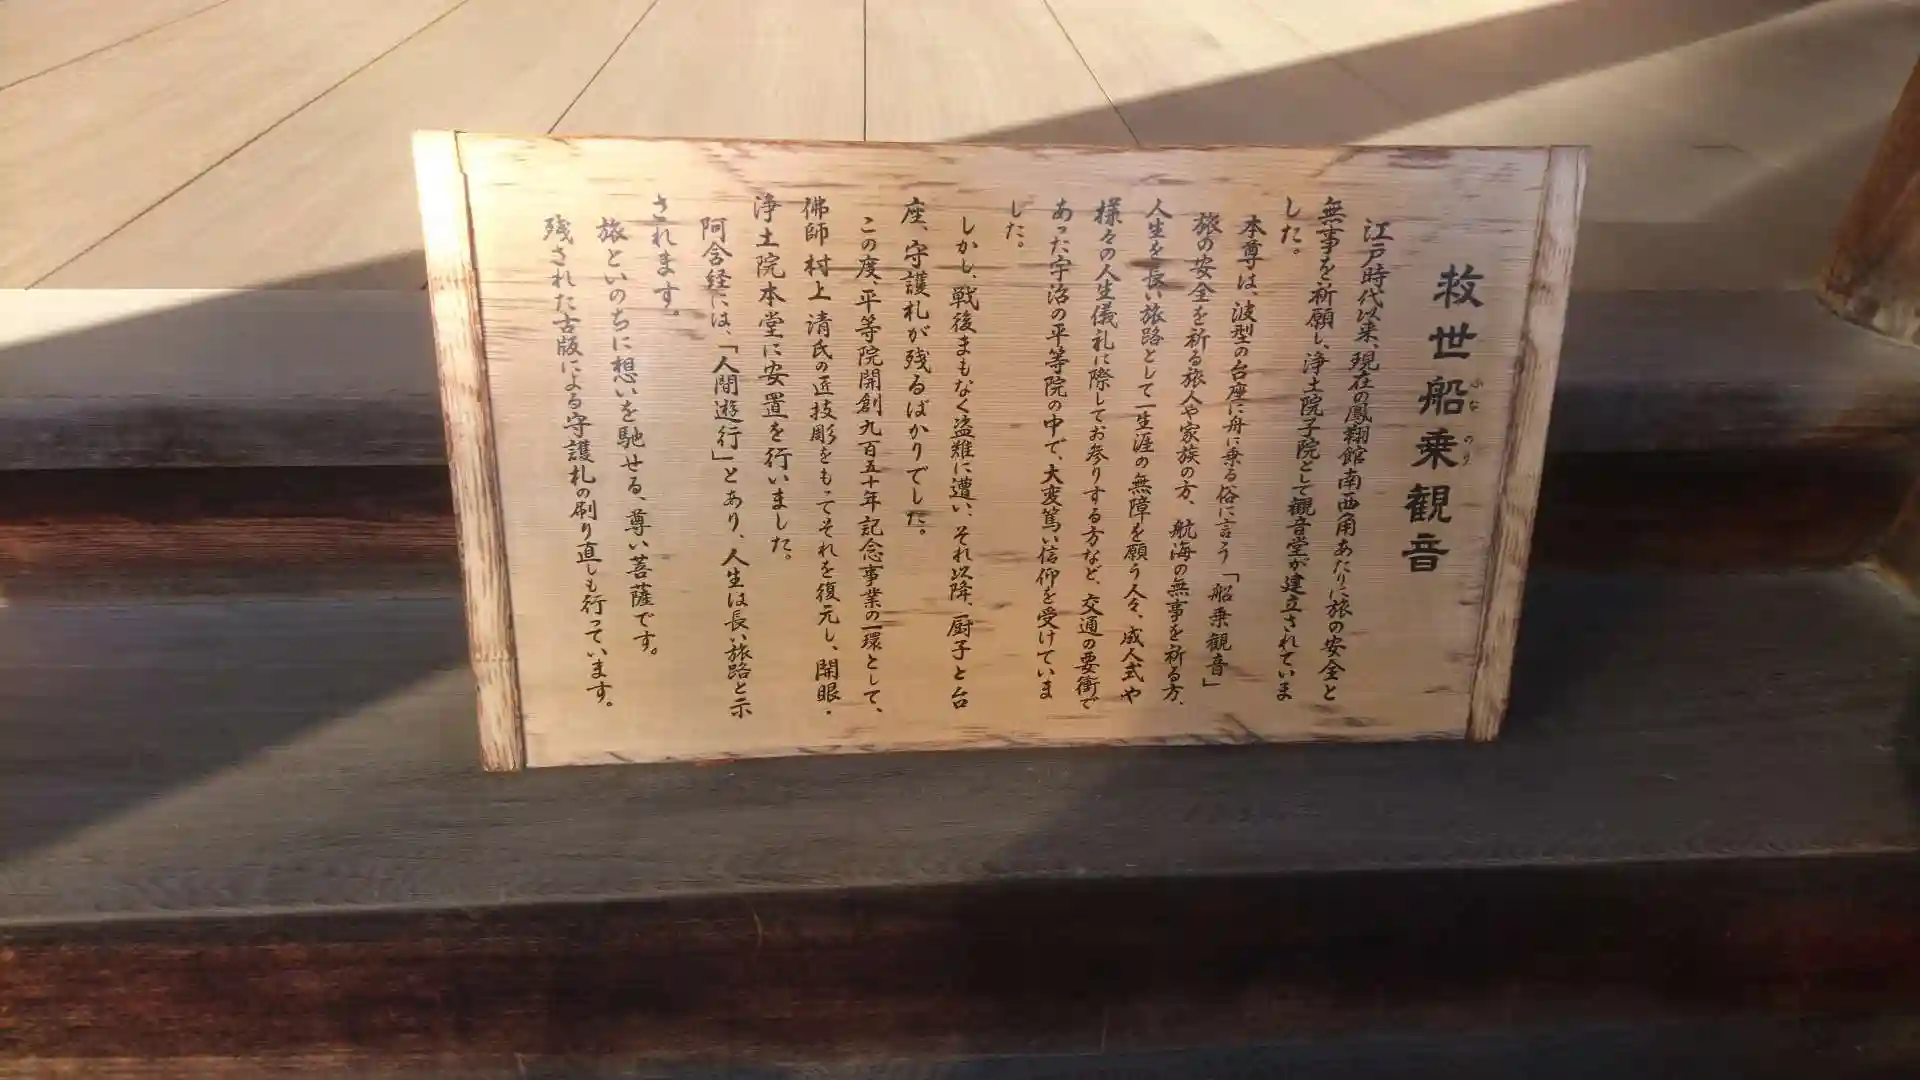 救世船乗観音
ふな のり
江戸時代以来、現在の鳳翔館南西角あたりに旅の安全と
無事を祈願し、浄土院子院として観音堂が建立されていま
した。
本尊は、波型の台座に舟に乗る俗に言う「船乗観音」
旅の安全を祈る旅人や家族の方、航海の無事を祈る方、
人生を長い旅路として一生涯の無障を願う人々、成人式や
様々の人生儀礼に際してお参りする方など、交通の要衝で
あった宇治の平等院の中で、大変篤い信仰を受けていま
した。
しかし、戦後まもなく盗難に遭い、それ以降、厨子と台
座、守護札が残るばかりでした。
この度、平等院開創九百五十年記念事業の一環として、
佛師村上清氏の匠技彫をもってそれを復元し、開眼・
浄土院本堂に安置を行いました。
阿含経には、「人間遊行」とあり、人生は長い旅路と示
されます。
旅といのちに想いを馳せる、尊い菩薩です。
残された古版による守護札の刷り直しも行っています。